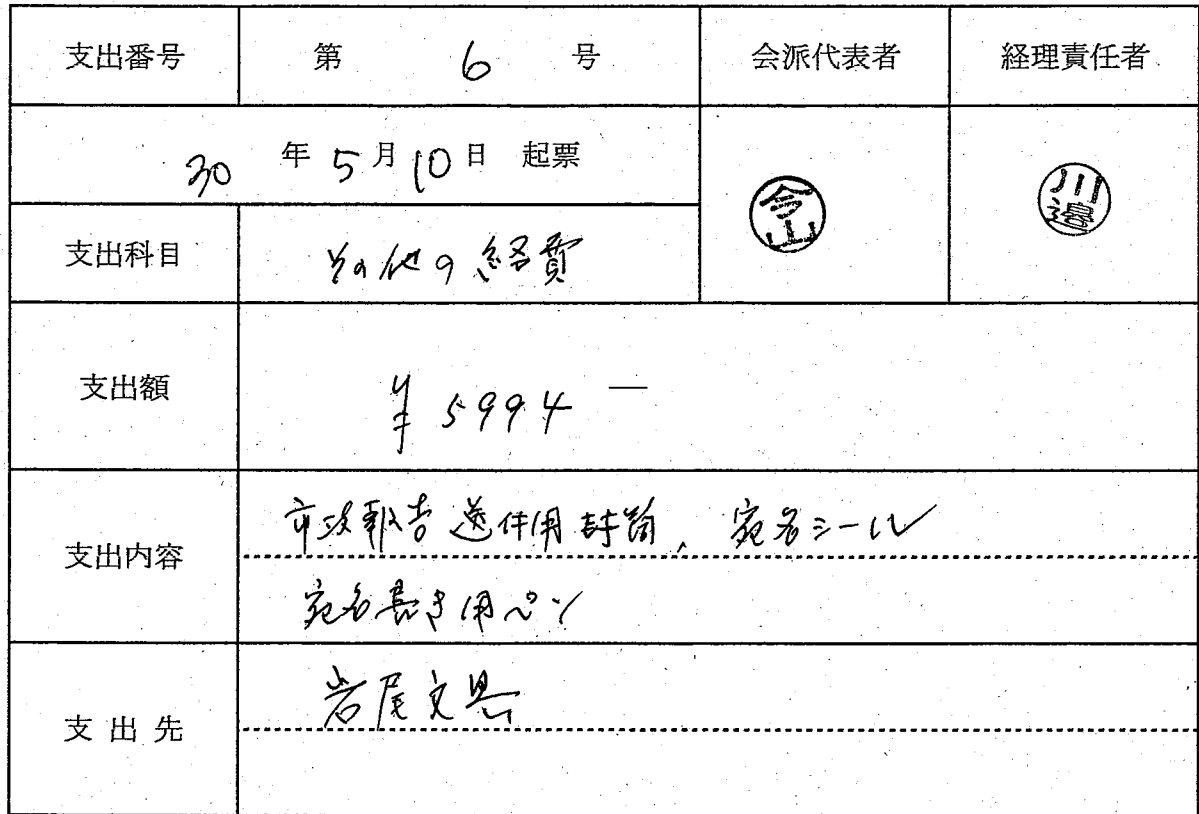 支出番号 第 6 号 会派代表者 経理責任者
30 年 5 月 10 日 起票
今山
川邉
支出科目 その他の経費
支出額 ¥5994 —
支出内容 市政報告送付用封筒、宛名シール
宛名書き用ペン
支出先 岩尾文具